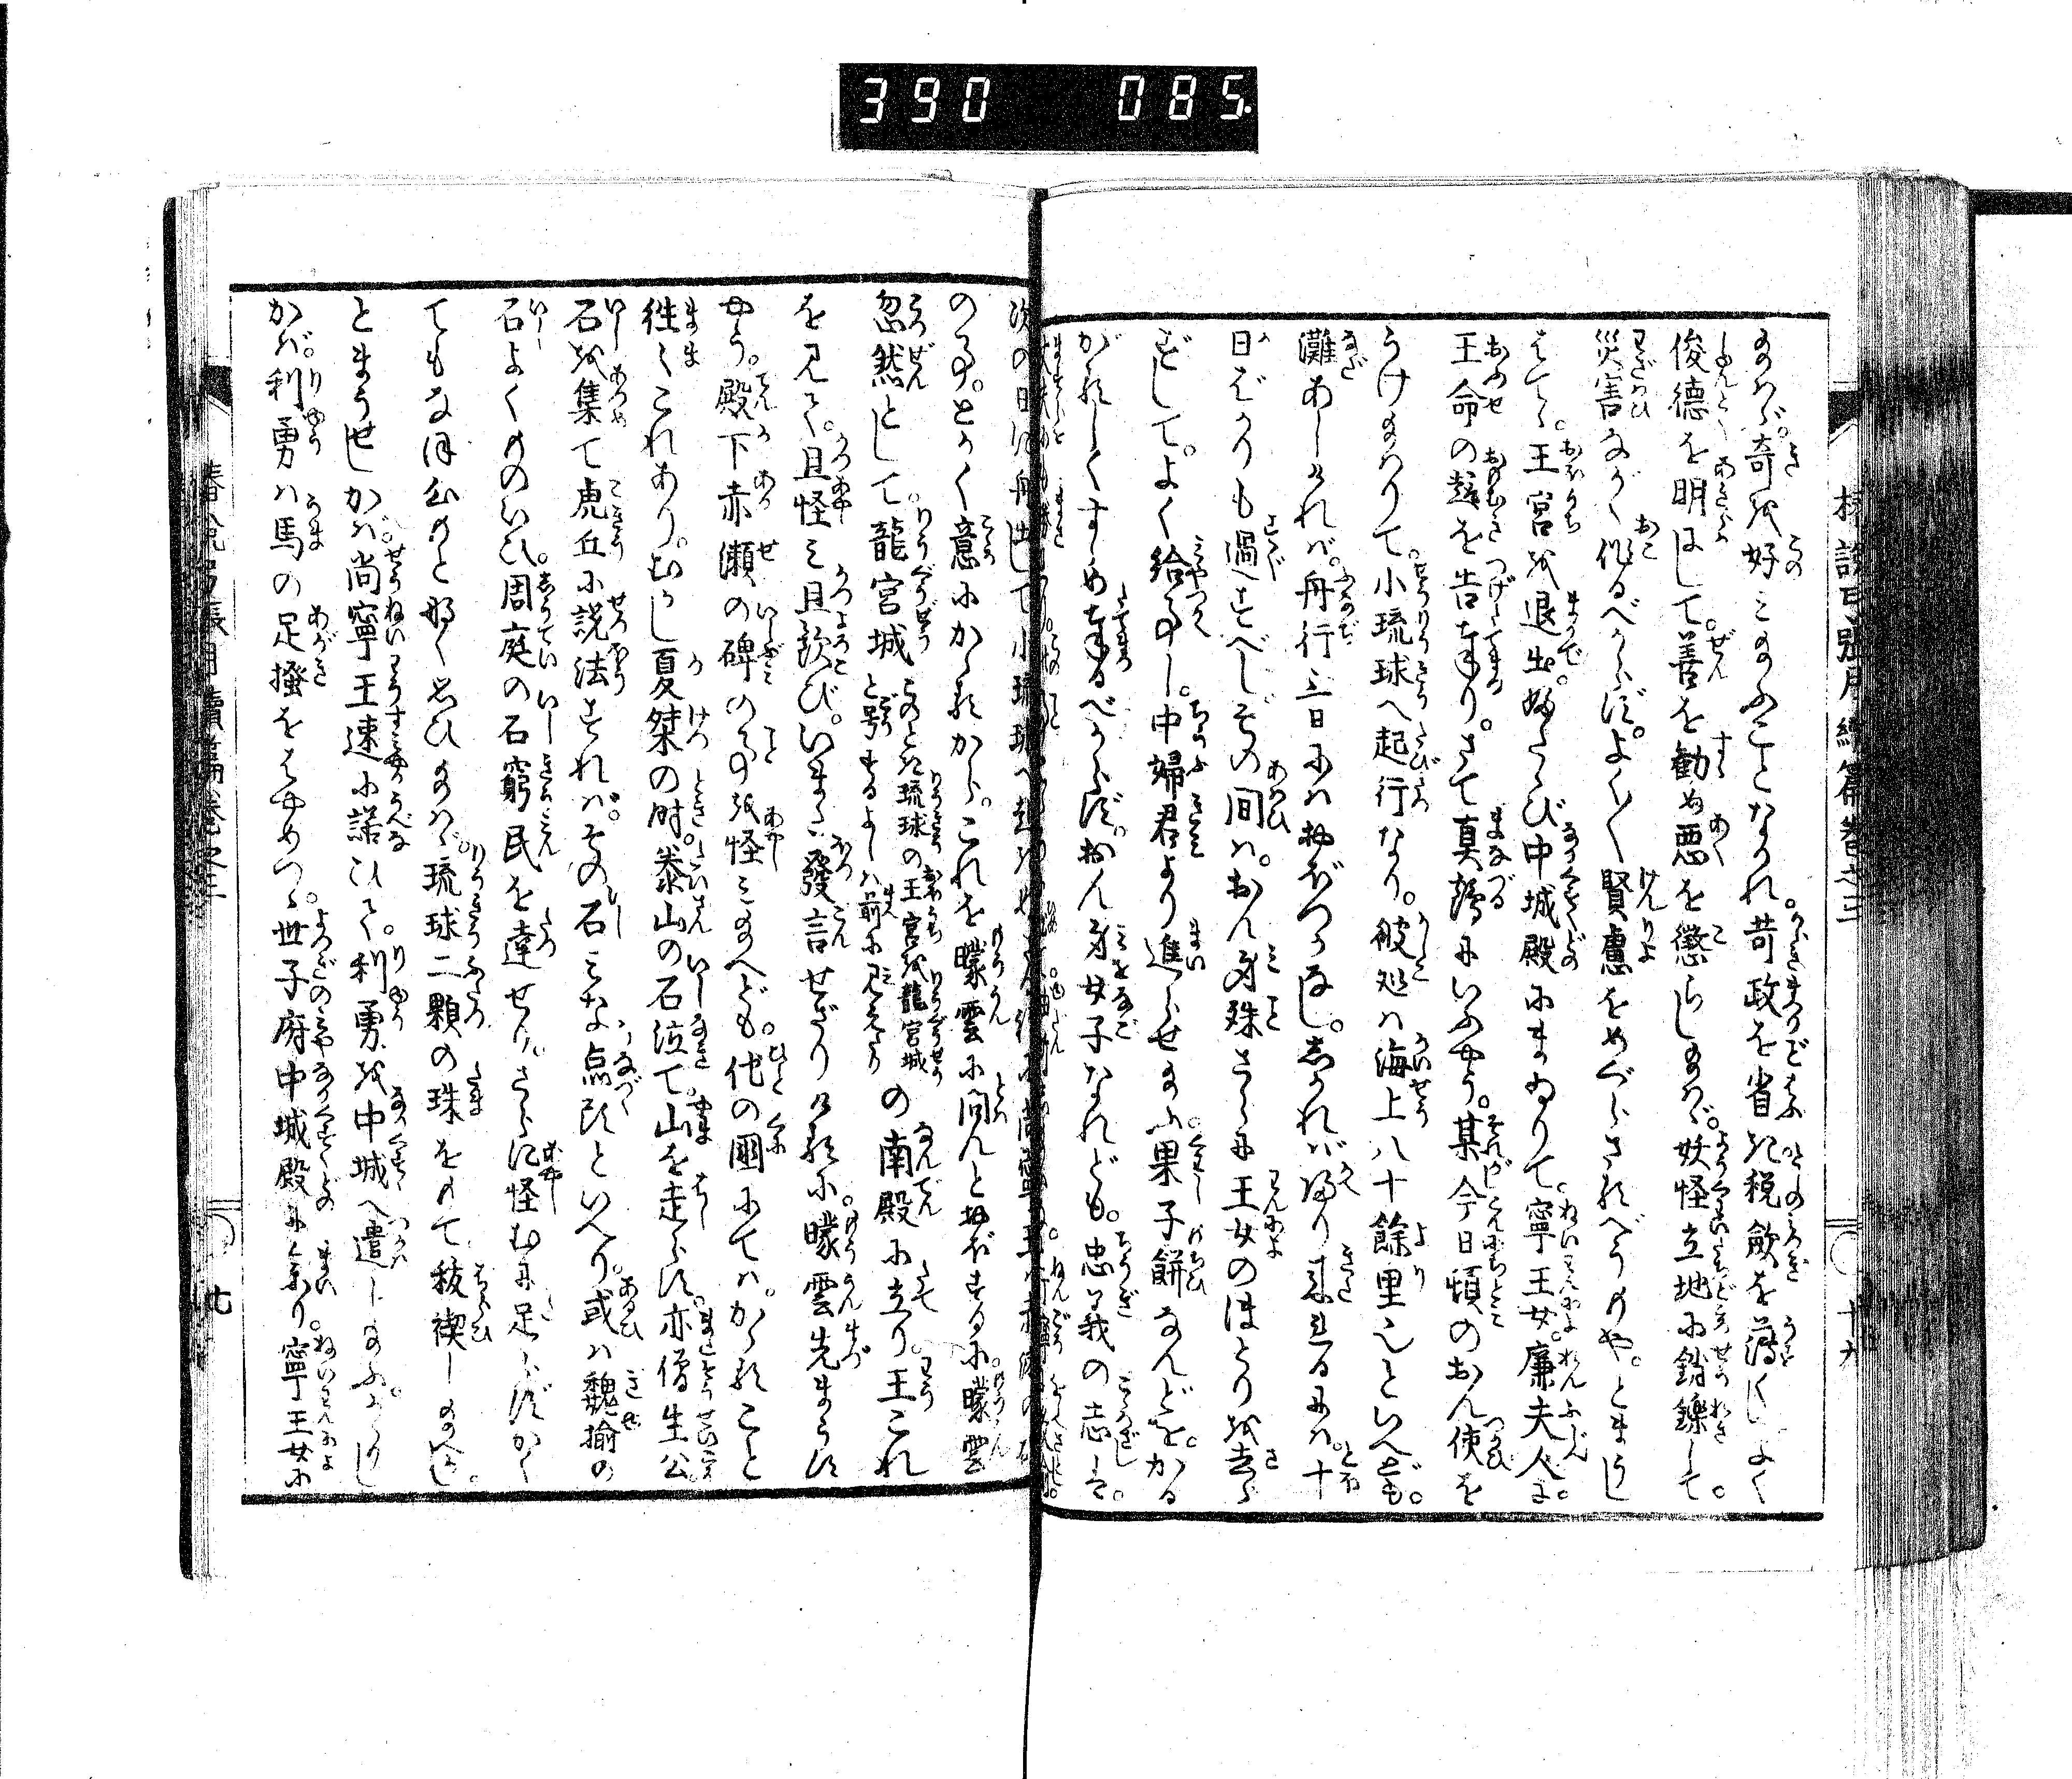 390 085.
給はゞ。奇を好み給ふことなかれ。苛政を省き税斂を薄くし。よく
俊徳を明にして。善を勧め悪を懲らし給はゞ。妖怪立地に銷鑠して。
災害ながく作るべからず。よく〳〵賢慮をめぐらさるべうもや。とまうし
はてゝ。王宮を退出。ふたゝび中城殿にまゐりて。寧王女。廉夫人に。
王命の趣を告奉り。さて真鶴にいふやう。某今日頓のおん使を
うけ給はりて。小琉球へ起行なり。彼処は海上八十餘里也といへども。
灘あしければ。舟行三日にはおぼつかなし。しかれば歸り來ぬるには。十
日ばかりも過すべし。その間は。おん身殊さらに王女のほとりを去ら
ずして。よく給事し。中婦君より進らせ給ふ果子餅なんどを。かろ
がろしくすゝめ奉るべからず。おん身女子なれども。忠義の志は。
のち。とかく意にかゝるから。これを曚雲に問んとおぼするに。曚雲
忽然として。龍宮城と号するよしは前に見えたり このとき琉球の王宮を龍宮城 の南殿に立り。王これ
を見て。且怪み且歓び。いまだ發言せざりけるに。曚雲先まうす
やう。殿下赤瀬の碑の事を怪み給へども。他の國にては。かゝること
往々これあり。むかし夏桀の時。泰山の石泣て。山を走らす。亦僧生公。
石を集て虎丘に説法すれば。その石みな点頭といへり。或は魏揄の
石よくものいひ。周庭の石窮民を達せり。さらに怪むに足らず。かく
てもなほ心もとなく思ひ給はゞ。琉球二顆の珠をもて秡禊し給へ。
とまうせしかば。尚寧王速に諾ひて。利勇を中城へ遣し給ふ。かゝりし
かば。利勇は馬の足掻をはやめつゝ。世子府中城殿に参り。寧王女に
七
十九